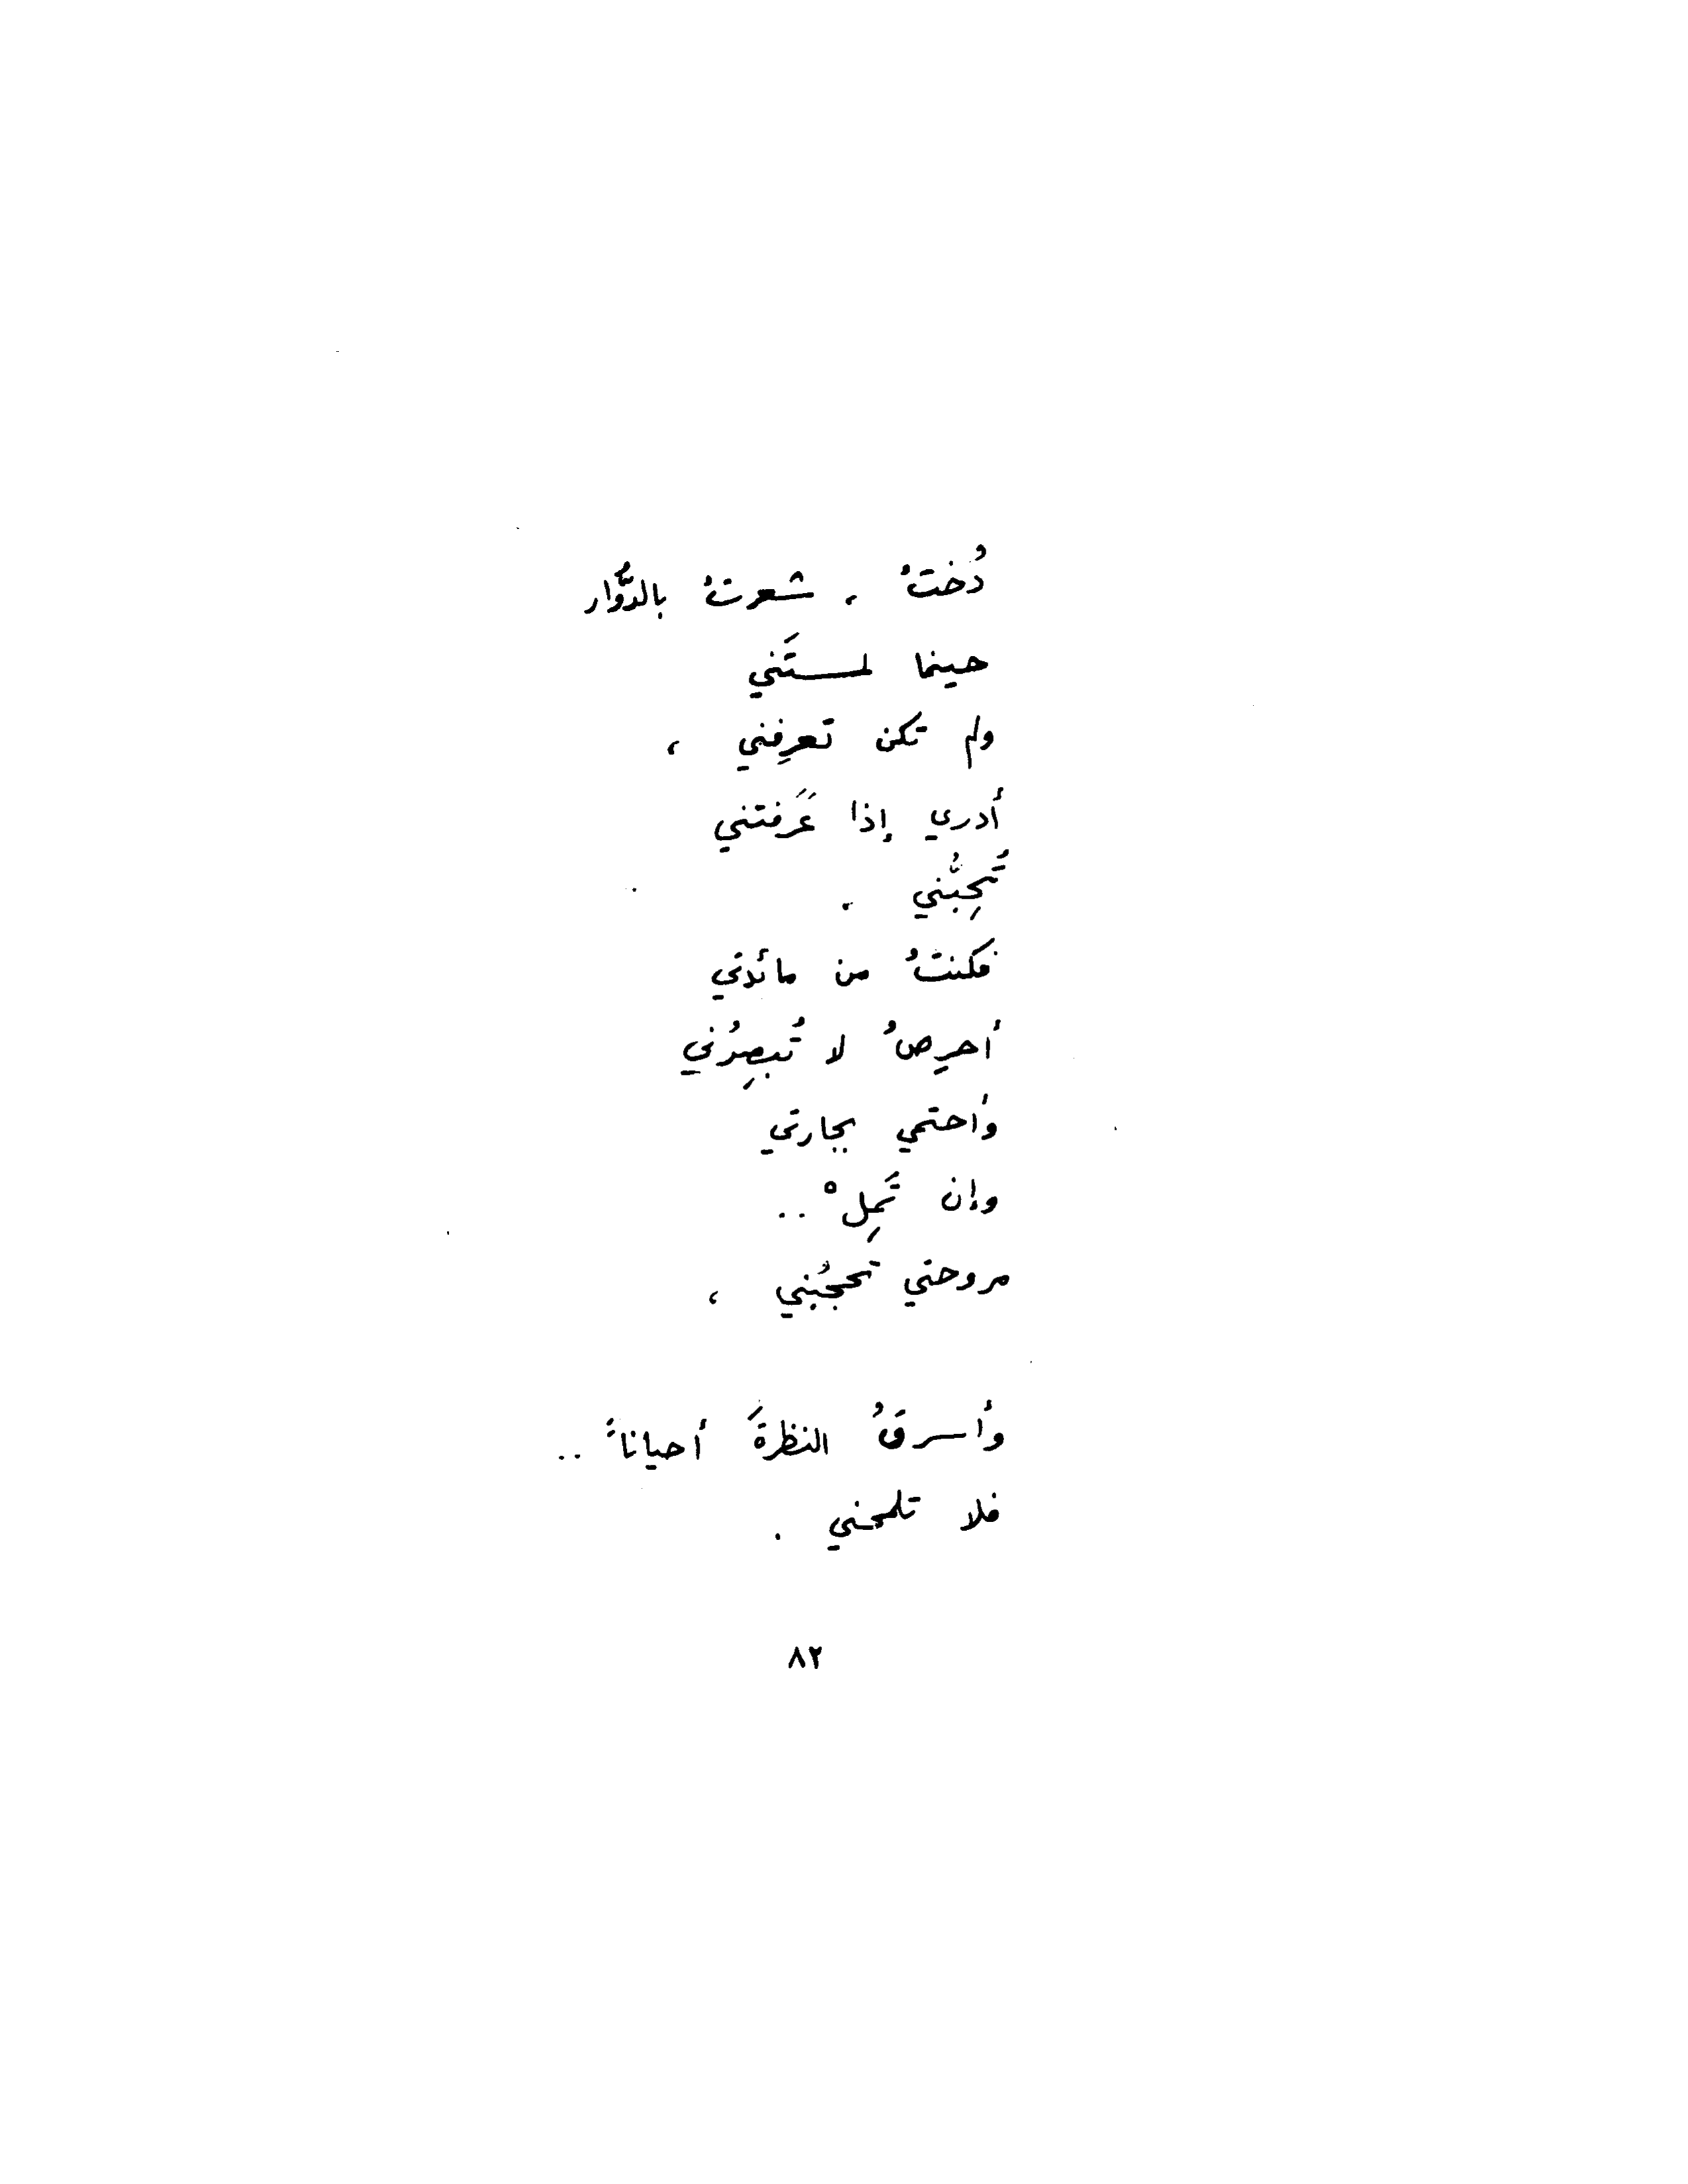 دُختُ ، شعرتُ بالدُّوّار
حينما لمستَني
ولم تكن تعرِفني ،
أدري إذا عَرَفتني
تُحِبُّني .
فكنتُ من مائدتي
أحرِصُ لا تُبصِرُني
وأحتمي بجارتي
وإن تَمِلْ ..
مروحتي تحجُبني ،
وأسرقُ النظرةَ أحياناً ..
فلا تلمحني .
٨٢